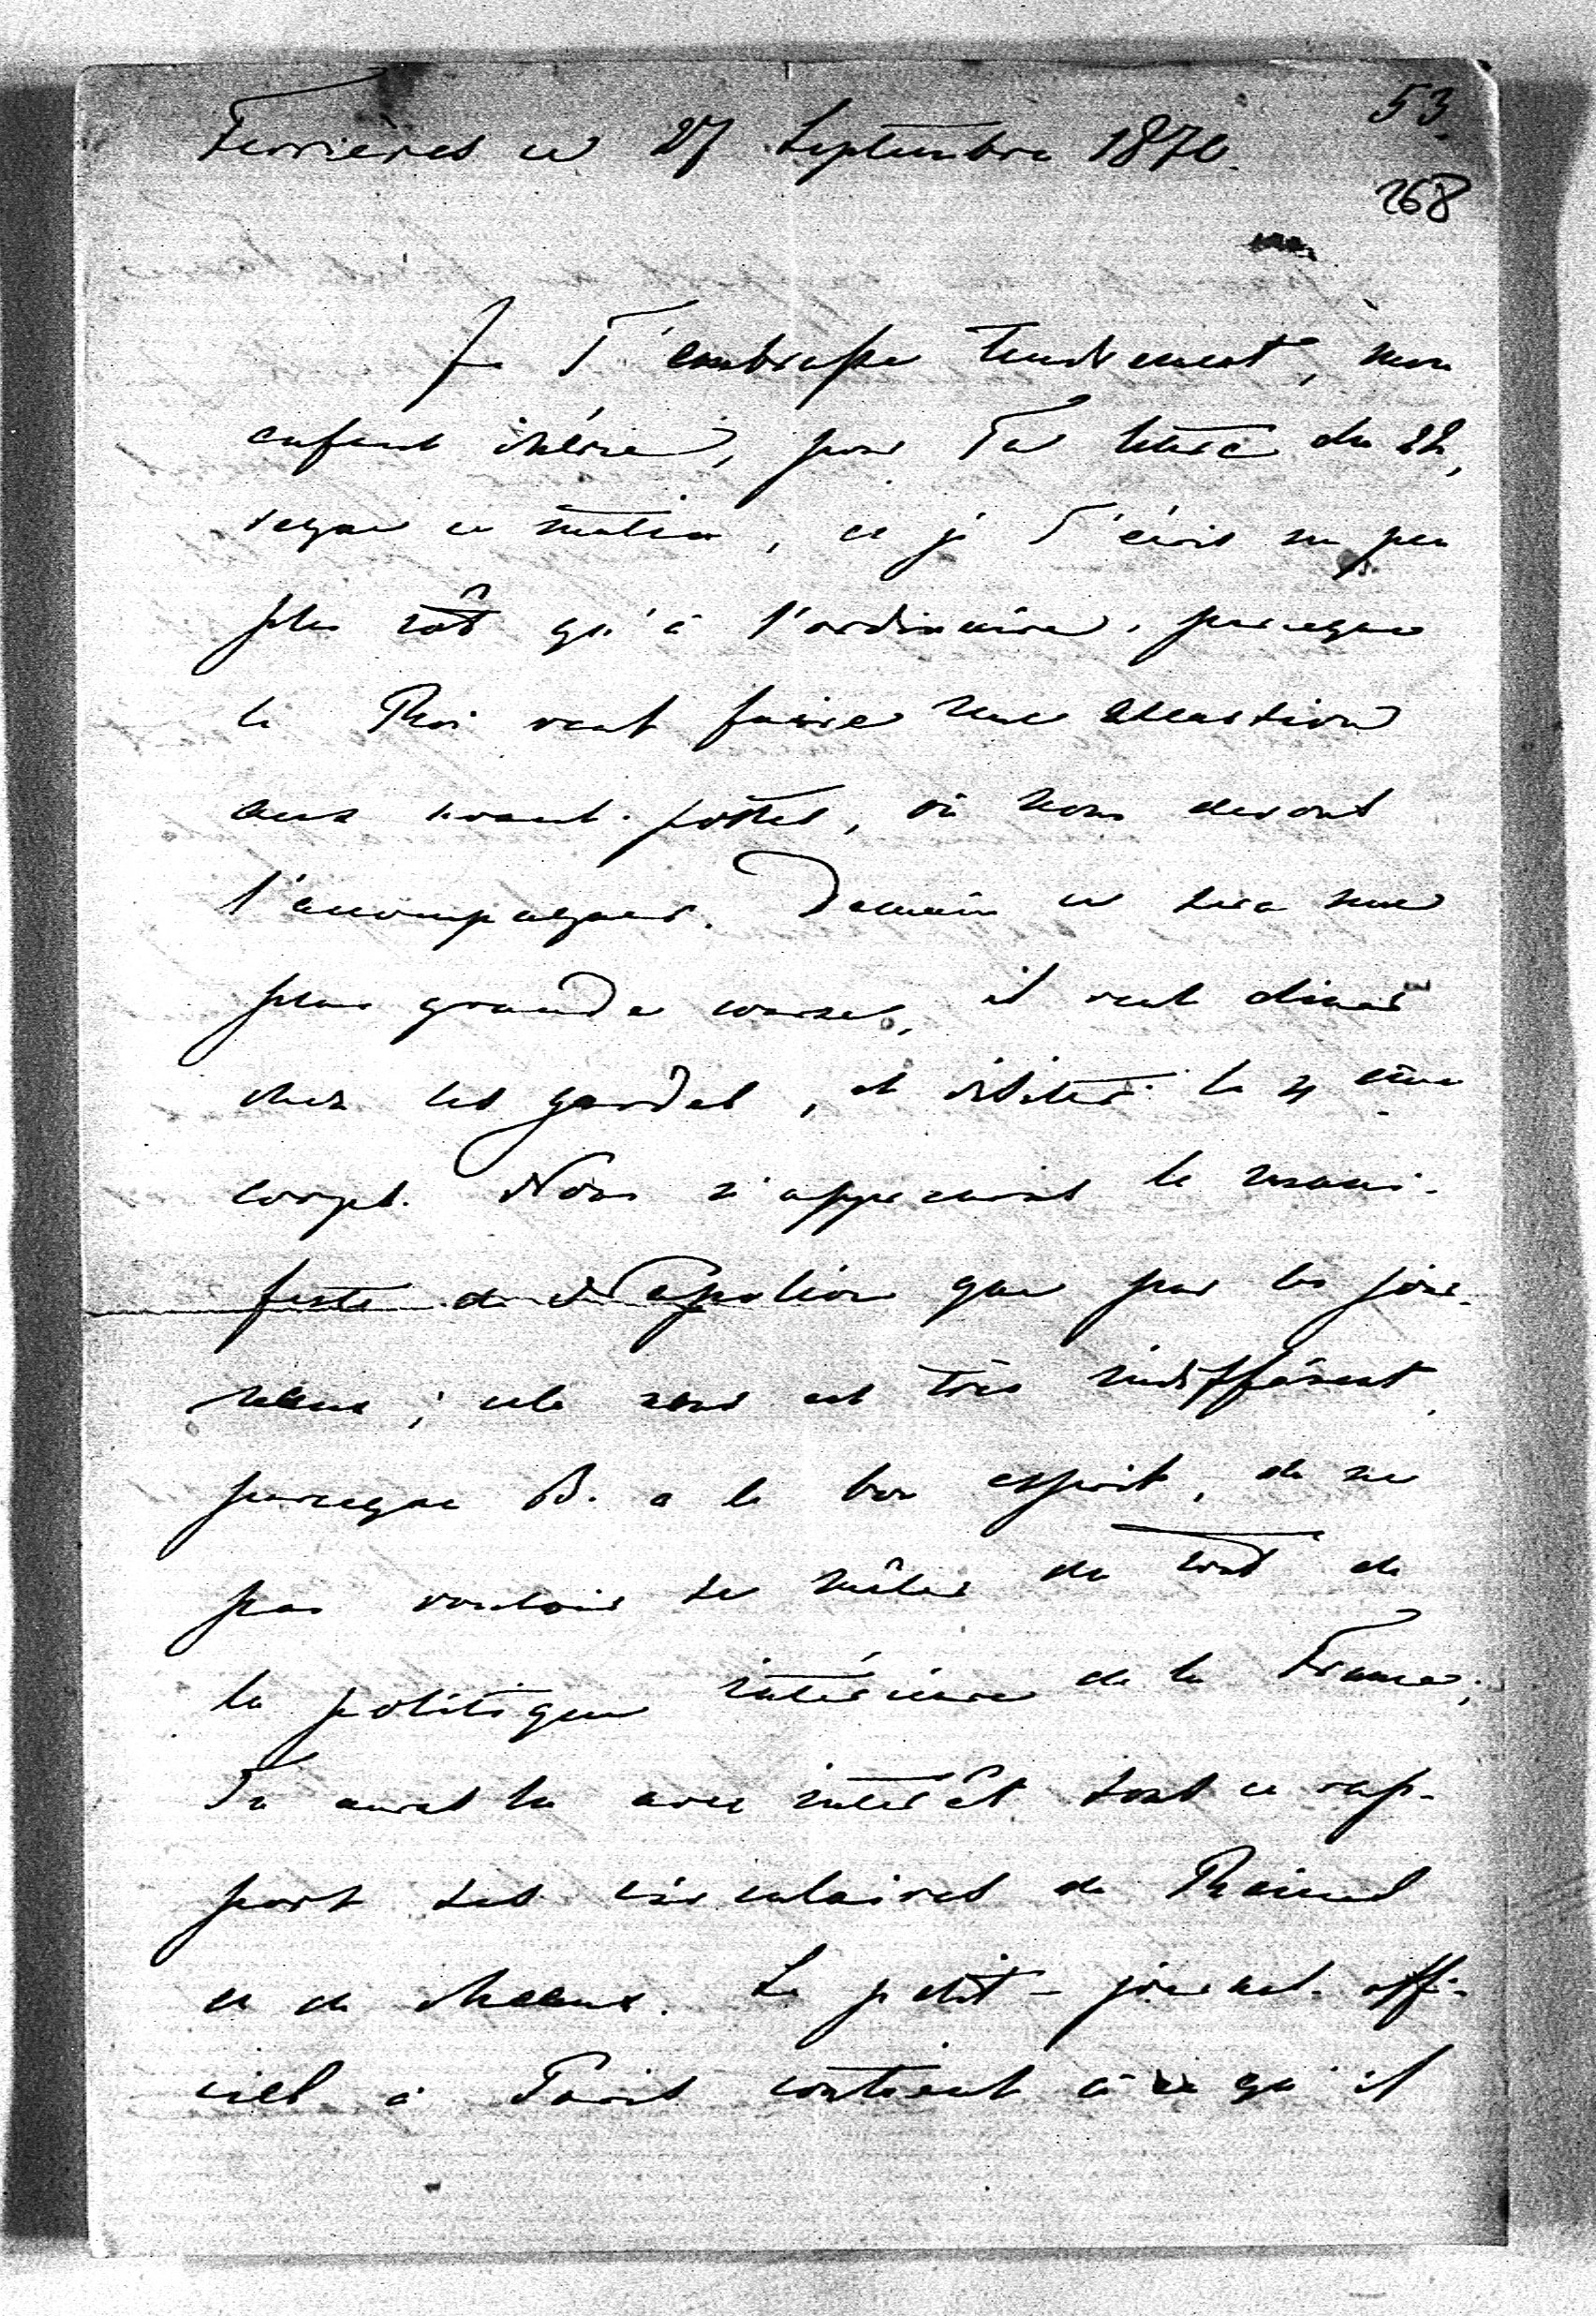 53.
Ferrières ce 27 Septembre 1870.
268
Je T'embrasse tendrement, mon
enfant chérie, pour Ta lettre du 22,
reçue ce matin, et je T'écris un peu
plus tôt qu'à l'ordinaire, parceque
le Roi veut faire une excursion
aux avant-postes, où nous devons
l'accompagner. Demain ce sera une
plus grande course, il veut diner
chez les gardes, et visiter le 4 ème
corps. Nous n'apprenons le mani-
feste de Napoléon que par les jour-
neaux; cela nous est très indifférent,
parceque B. a le bon esprit, de ne
pas vouloir se mêler du tout de
la politique intérieure de la France;
Tu auras lu avec intérêt sous ce rap-
port ses circulaires de Reims
et de Meaux. Le petit-journal offi-
ciel à Paris contient à ce qu'il